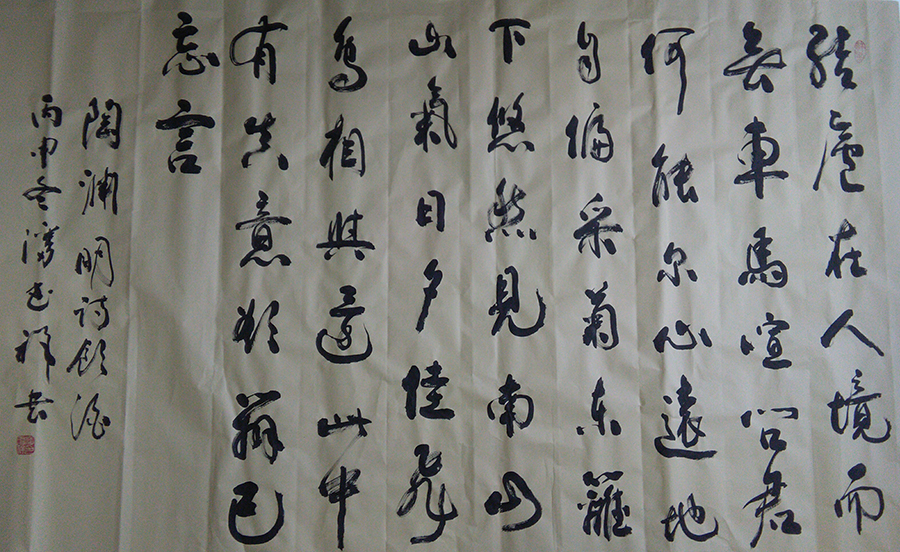 結廬在人境而
無車馬喧問君
何能尔心遠地
自偏采菊東籬
下悠然見南山
山氣日夕佳飛
鳥相與還此中
有真意欲辯已
忘言
陶淵明詩飲酒
丙申冬